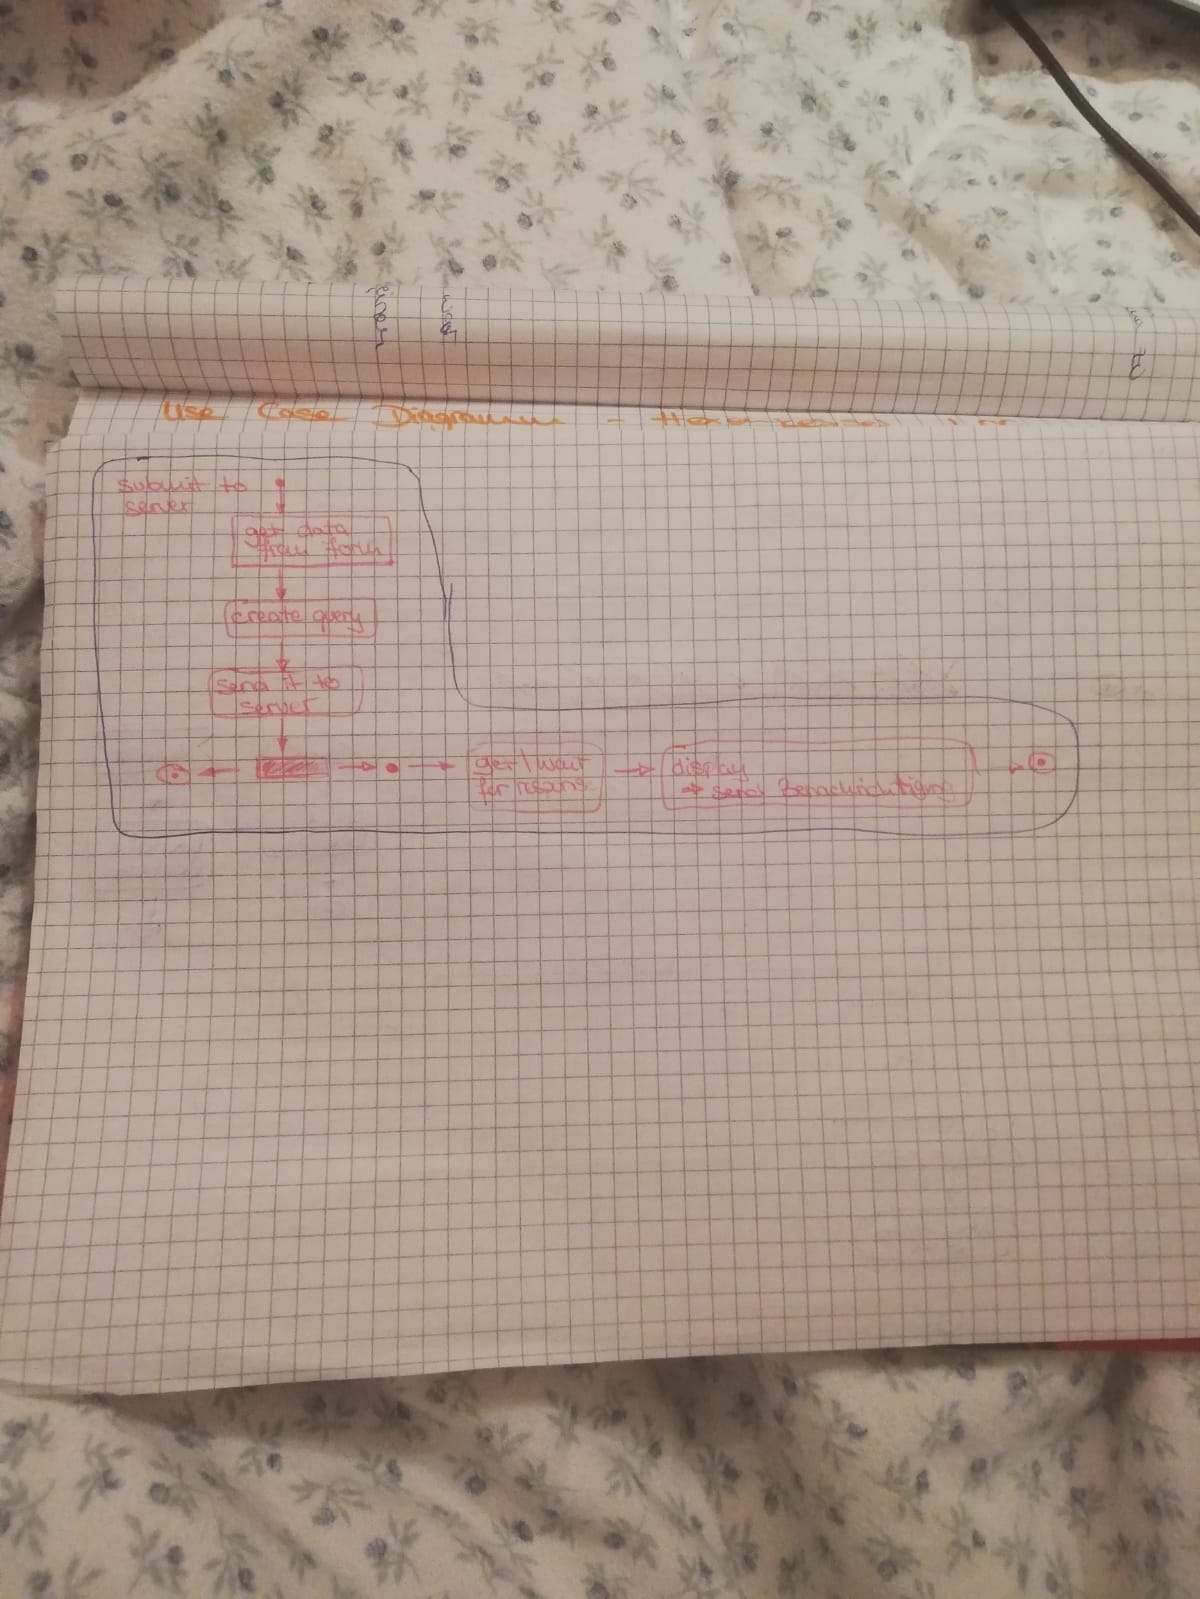 Use Case Diagramm -
submit to
server
get data
from form
create query
send it to
server
get / wait
for
display
→ send Benachrichtigung